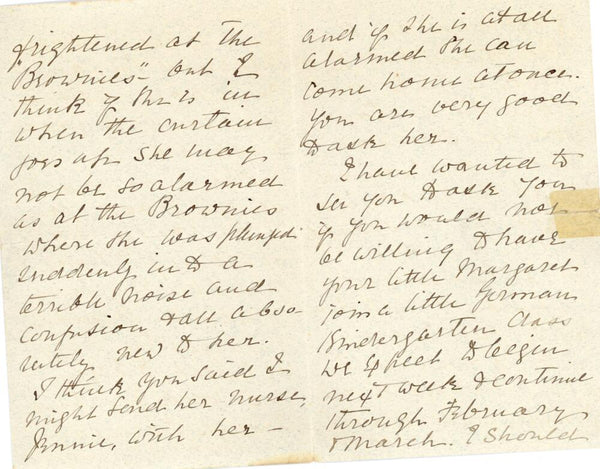 frightened at the
Brownies" but I
think if she is in
when the curtain
goes up she may
not be so alarmed
as at the Brownies
where she was plunged
suddenly into a
terrible noise and
confusion & all abso
lutely new to her.
I think you said I
might send her nurse,
Jennie, with her –
and if she is at all
alarmed she can
come home at once.
You are very good
to ask her.
I have wanted to
see you to ask you
if you would not
be willing to have
your little Margaret
join a little German
Kindergarten Class
we expect to begin
next week & continue
through February
& March. I should